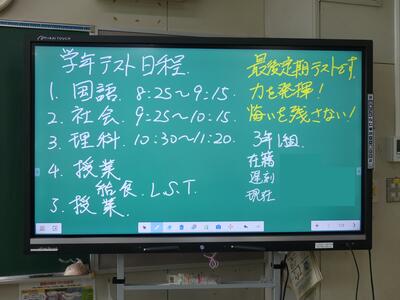 学年テスト日程.
1. 国語. 8:25〜9:15.
2. 社会. 9:25〜10:15.
3. 理科. 10:30〜11:20.
4. 授業
給食. L.S.T.
5. 授業.
最後定期テストです.
力を発揮!
悔いを残さない!
3年1組.
在籍
遅刻
現在